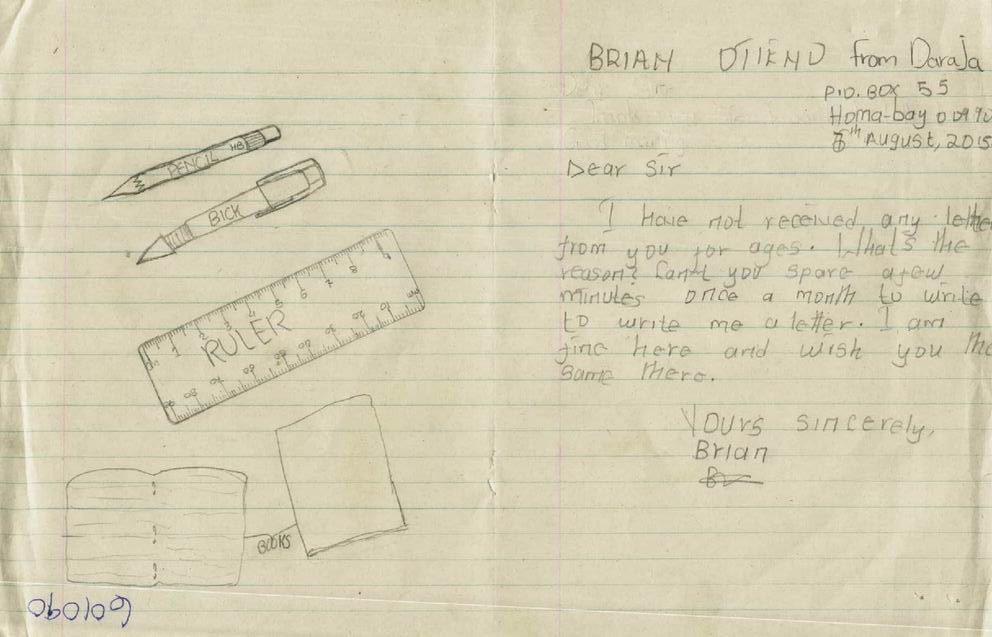 PENCIL HB
BICK
1 2 3 4 5 6 7 8 9
RULER
BOOKS
601090
BRIAN OTIENO from Daraja
P.O. BOX 55
Homa-bay
August, 2015
Dear Sir
I have not received any letter
from you for ages. What's the
reason? Can't you spare a few
minutes once a month to write
to write me a letter. I am
fine here and wish you the
same there.
Yours sincerely,
Brian